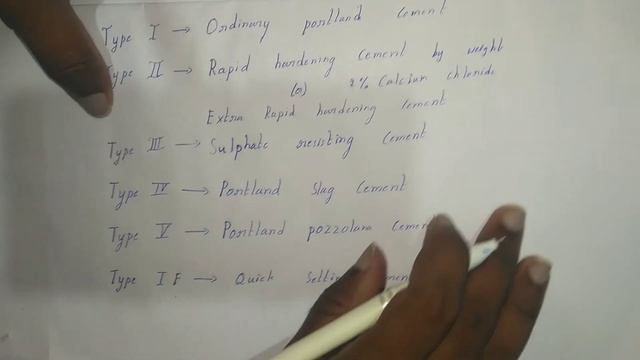 Type I → Ordinary portland cement
Type II → Rapid hardening cement by weight
(or) 2% Calcium chloride
Extra Rapid hardening cement
Type III → Sulphate resisting cement
Type IV → Portland slag cement
Type V → Portland pozzolana
Type I F → Quick